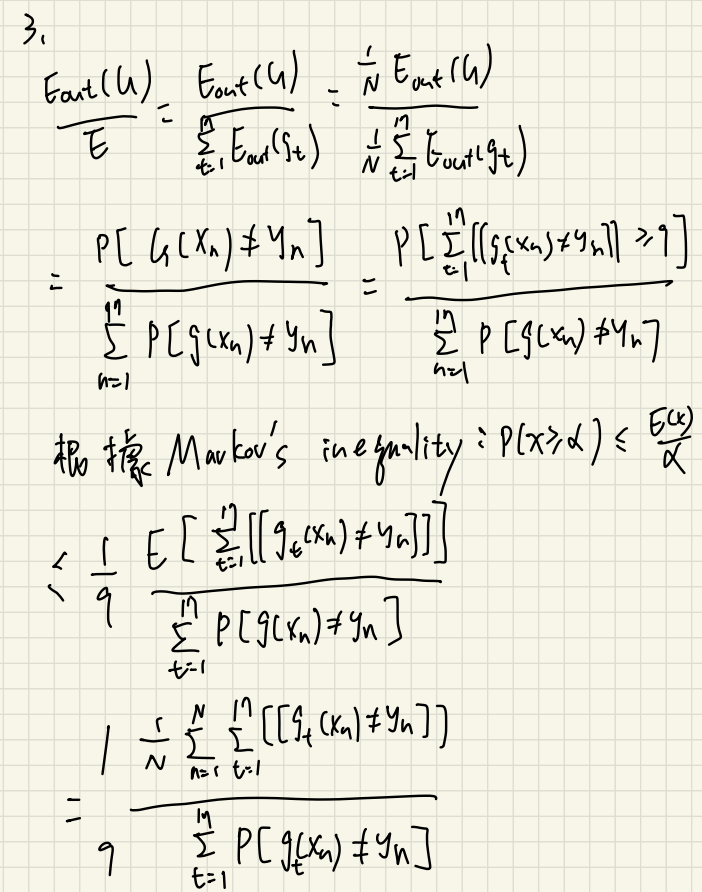 3.
E_out(G) / E = E_out(G) / ∑_{t=1}^{17} E_out(g_t) = 1/N E_out(G) / 1/N ∑_{t=1}^{17} E_out(g_t)
= P[G(x_n) ≠ y_n] / ∑_{n=1}^{17} P[g(x_n) ≠ y_n] = P[∑_{t=1}^{17} [[g_t(x_n) ≠ y_n]] ≥ 9] / ∑_{n=1}^{17} P[g(x_n) ≠ y_n]
根據 Markov's inequality : P(x ≥ α) ≤ E(x) / α
≤ 1/9 E[∑_{t=1}^{17} [[g_t(x_n) ≠ y_n]]] / ∑_{t=1}^{17} P[g(x_n) ≠ y_n]
= 1/9 1/N ∑_{n=1}^{N} ∑_{t=1}^{17} [[g_t(x_n) ≠ y_n]] / ∑_{t=1}^{17} P[g_t(x_n) ≠ y_n]